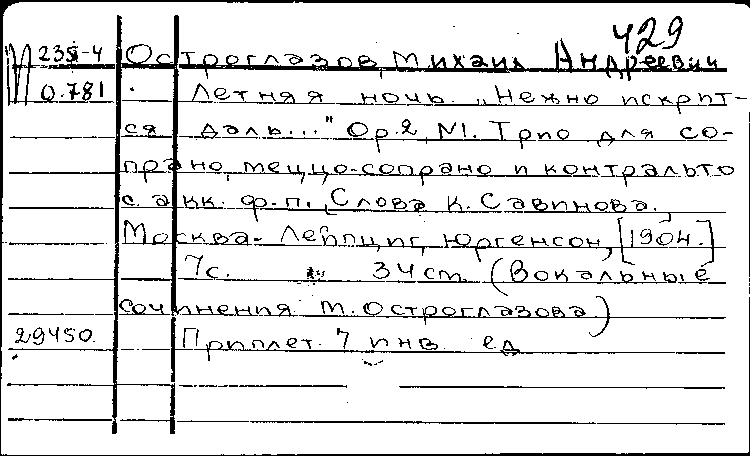 429
М 235-4 Остроглазов, Михаил Андреевич
0.781 Летняя ночь. „Нежно искрит-
ся даль..." Ор.2, N1. Трио для со-
прано, меццо-сопрано и контральто
с акк. ф-п., Слова К. Савинова.
Москва-Лейпциг, Юргенсон, [1904.]
7с. 34 cm (Вокальные
сочинения М. Остроглазова.)
29450. Приплет. 7 инв. ед